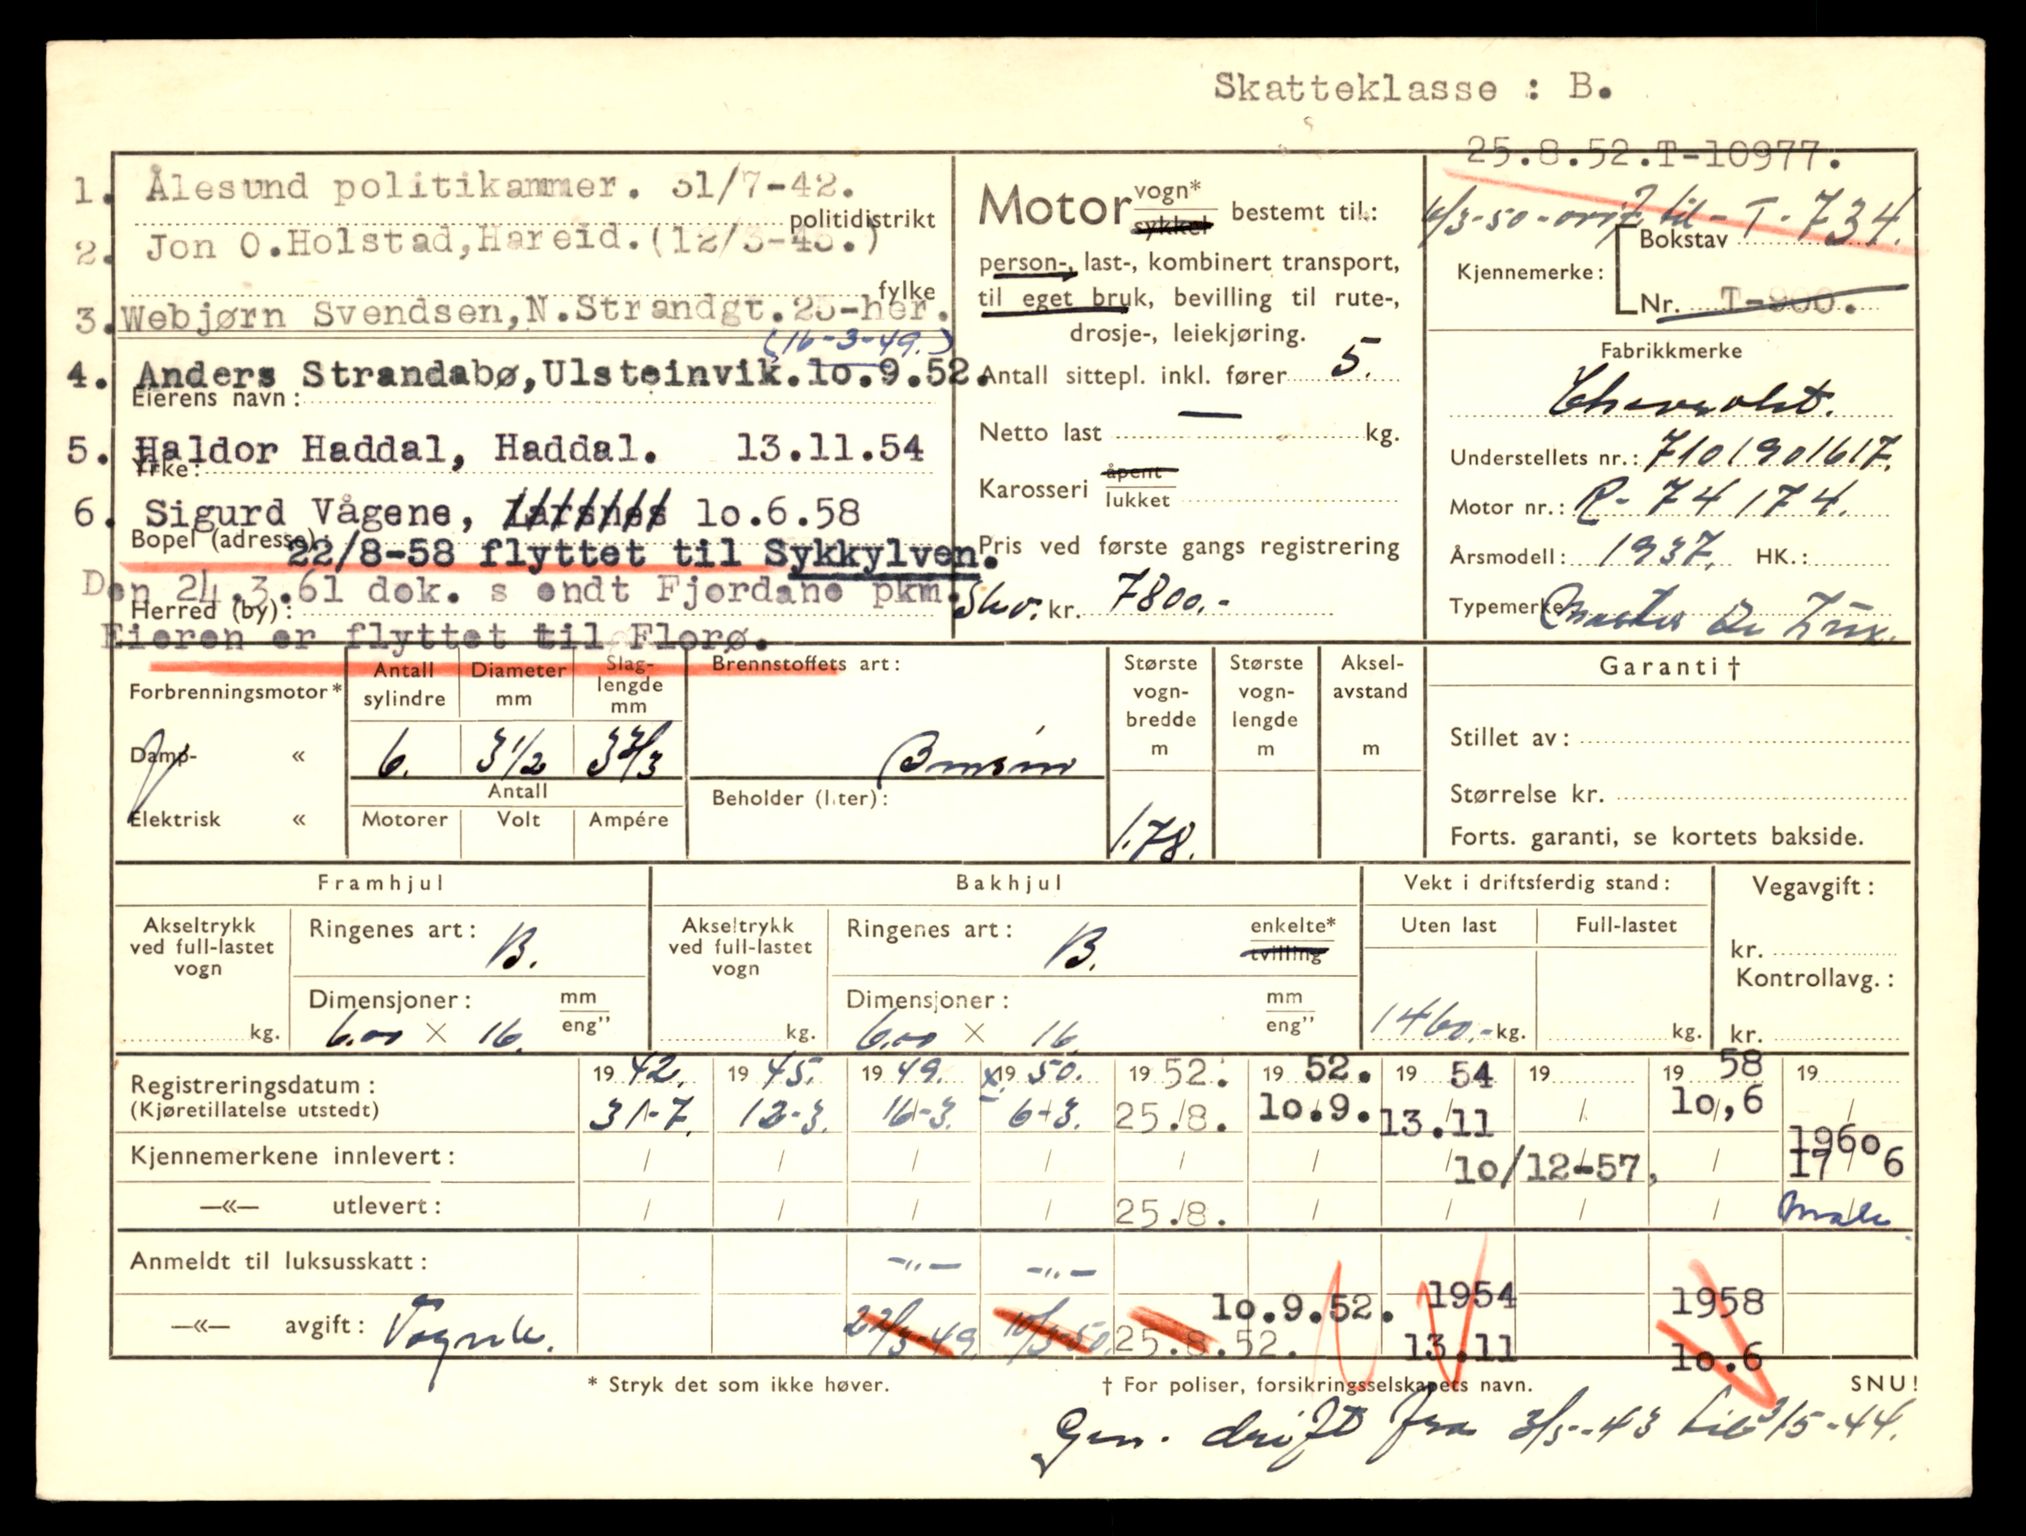 Skatteklasse : B.
25.8.52.T-10977.
1. Ålesund politikammer. 31/7-42.
politidistrikt
2. Jon O.Holstad,Hareid.(12/3-45.)
fylke
3. Webjørn Svendsen,N.Strandgt.25-her.
(16-3-49.)
4. Anders Strandabø,Ulsteinvik.lo.9.52.
Eierens navn:
5. Haldor Haddal, Haddal. 13.11.54
Yrke:
6. Sigurd Vågene, Larsnes lo.6.58
Bopel (adresse):
22/8-58 flyttet til Sykkylven.
Den 24.3.61 dok. s endt Fjordane pkm.
Herred (by):
Eieren er flyttet til Florø.
Motor vogn* sykkel bestemt til:
person-, last-, kombinert transport,
til eget bruk, bevilling til rute-,
drosje-, leiekjøring.
Antall sittepl. inkl. fører 5.
Netto last — kg.
Karosseri åpent lukket
Pris ved første gangs registrering
Skv. kr. 7800.-
6/3-50-omf. til - T-734.
Bokstav
Kjennemerke:
Nr. T-900.
Fabrikkmerke
Chevrolet.
Understellets nr.: 7101901617.
Motor nr.: R-74174.
Årsmodell: 1937. HK.:
Typemerke: Master De Lux.
Forbrenningsmotor*
Damp- «
Elektrisk «
Antall sylindre
Diameter mm
Slag-lengde mm
6. 3 1/2 3 3/3
Antall
Motorer Volt Ampére
Brennstoffets art:
Bensin
Beholder (liter):
Største vogn-bredde m
Største vogn-lengde m
Aksel-avstand m
1.78.
Garanti†
Stillet av:
Størrelse kr.
Forts. garanti, se kortets bakside.
Framhjul
Akseltrykk ved full-lastet vogn
kg.
Ringenes art: B.
Dimensjoner: mm eng"
6.00 × 16.
Bakhjul
Akseltrykk ved full-lastet vogn
kg.
Ringenes art: B. enkelte* tvilling
Dimensjoner: mm eng"
6.00 × 16
Vekt i driftsferdig stand:
Uten last Full-lastet
1460.- kg. kg.
Vegavgift:
kr.
Kontrollavg.:
kr.
Registreringsdatum: 19 42. 19 45. 19 49. x. 19 50. 19 52. 19 52. 19 54 19 19 58 19
(Kjøretillatelse utstedt) 31-7. 12-3. 16-3. 6-3. 25./8. lo.9. 13.11 / lo,6 /
Kjennemerkene innlevert: / / / / / / / lo/12-57, / 196o 17 / 6
—«— utlevert: / / / / 25./8. / / / /
Anmeldt til luksusskatt: -"- -"-
—«— avgift: 22/3-49. 10/3-50. 25.8.52. lo.9.52. 1954 13.11 1958 lo.6
* Stryk det som ikke høver.
† For poliser, forsikringsselskapets navn.
SNU!
Gen. drift fra 3/5-43 til 3/5-44.